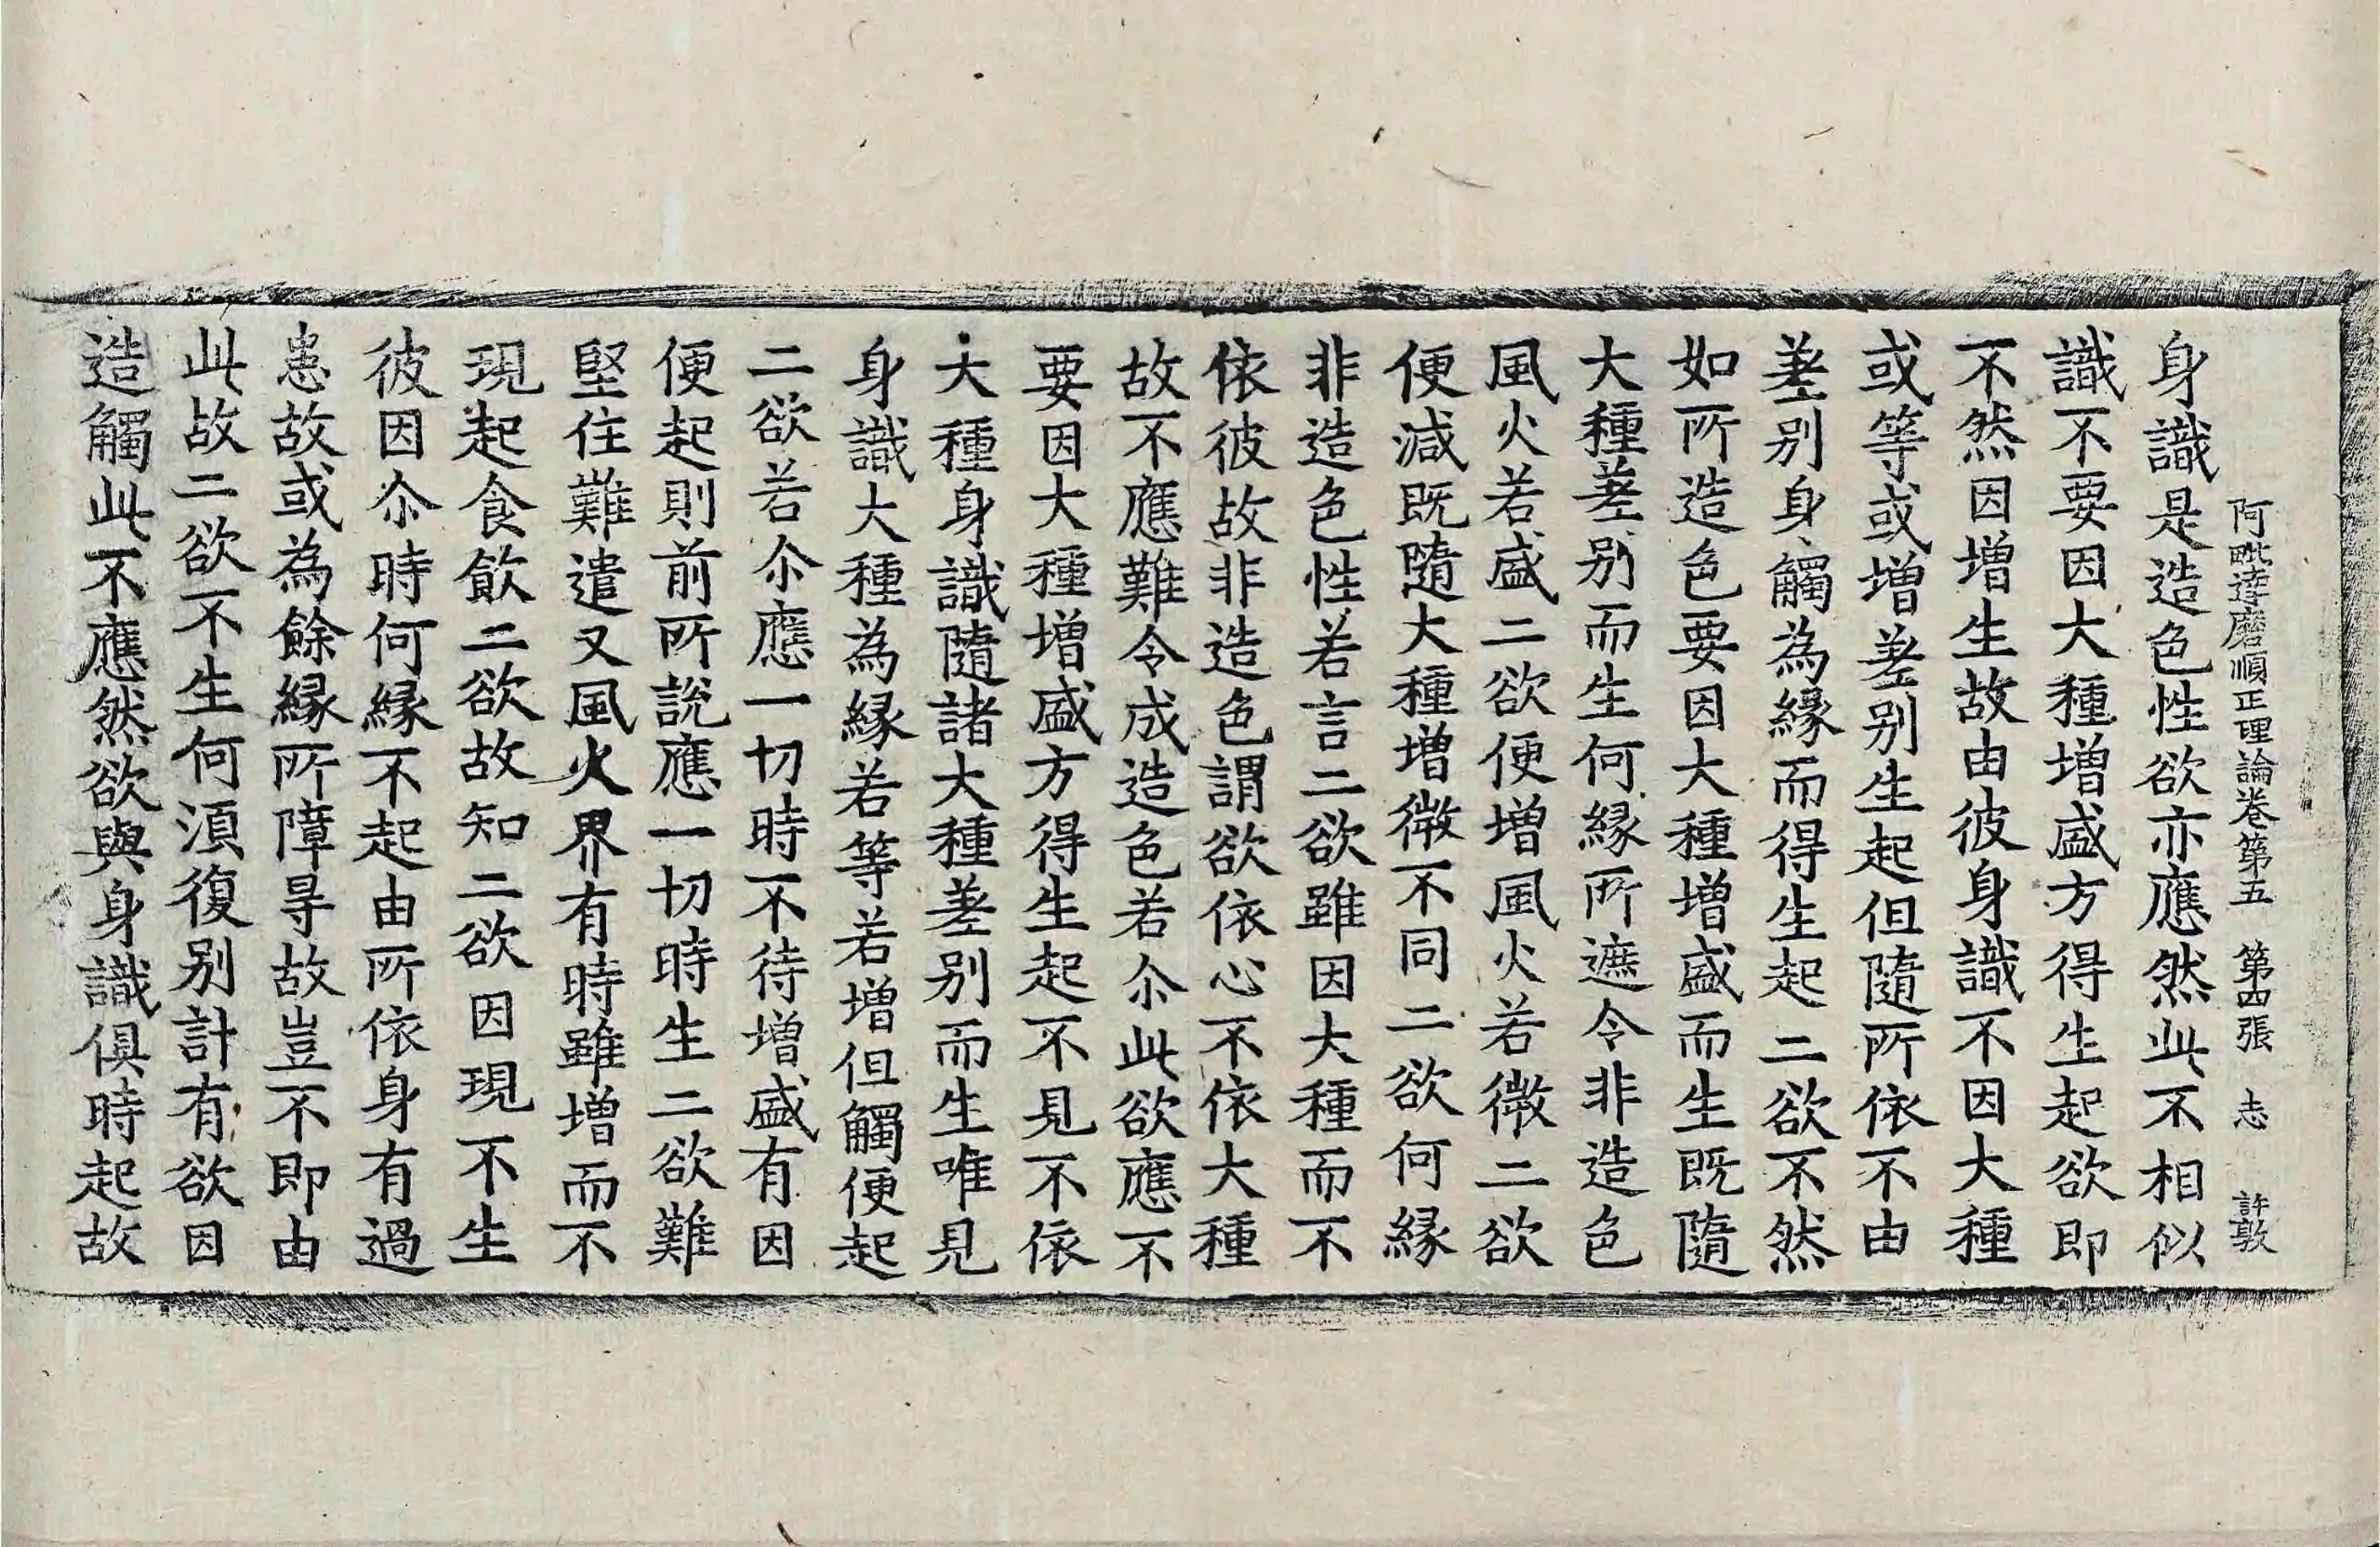 阿毗達磨順正理論卷第五 第四張 志 許敦
身識是造色性欲亦應然此不相似
識不要因大種增盛方得生起欲即
不然因增生故由彼身識不因大種
或等或增差别生起但隨所依不由
差别身觸為緣而得生起二欲不然
如所造色要因大種增盛而生既隨
大種差别而生何緣所遮令非造色
風火若盛二欲便增風火若微二欲
便減既隨大種增微不同二欲何緣
非造色性若言二欲雖因大種而不
依彼故非造色謂欲依心不依大種
故不應難令成造色若尒此欲應不
要因大種增盛方得生起不見不依
大種身識隨諸大種差别而生唯見
身識大種為緣若等若增但觸便起
二欲若尒應一切時不待增盛有因
便起則前所說應一切時生二欲難
堅住難遣又風火界有時雖增而不
現起食飲二欲故知二欲因現不生
彼因尒時何緣不起由所依身有過
患故或為餘緣所障㝵故豈不即由
此故二欲不生何須復别計有欲因
造觸此不應然欲與身識俱時起故